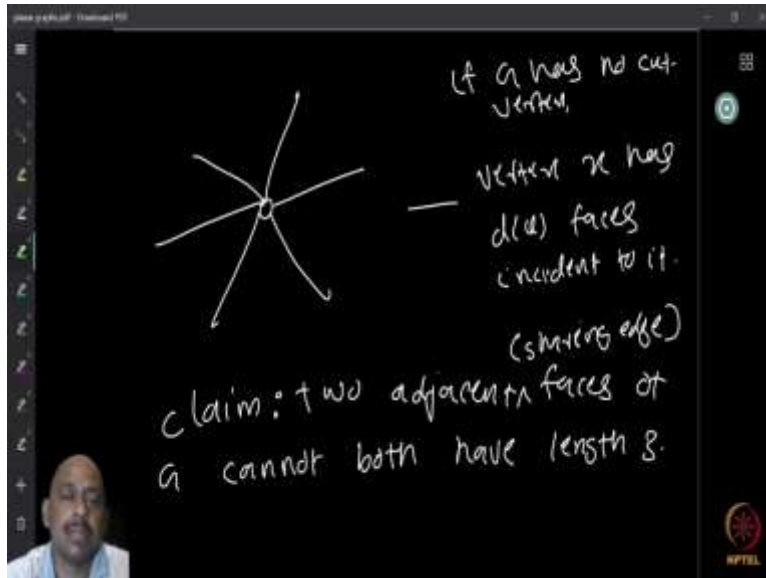 plane graphs.pdf - Download PDF
if G has no cut-
vertex,
— vertex x has
d(x) faces
incident to it.
(sharing edge)
claim: two adjacent ∧ faces of
G cannot both have length 3.
NPTEL